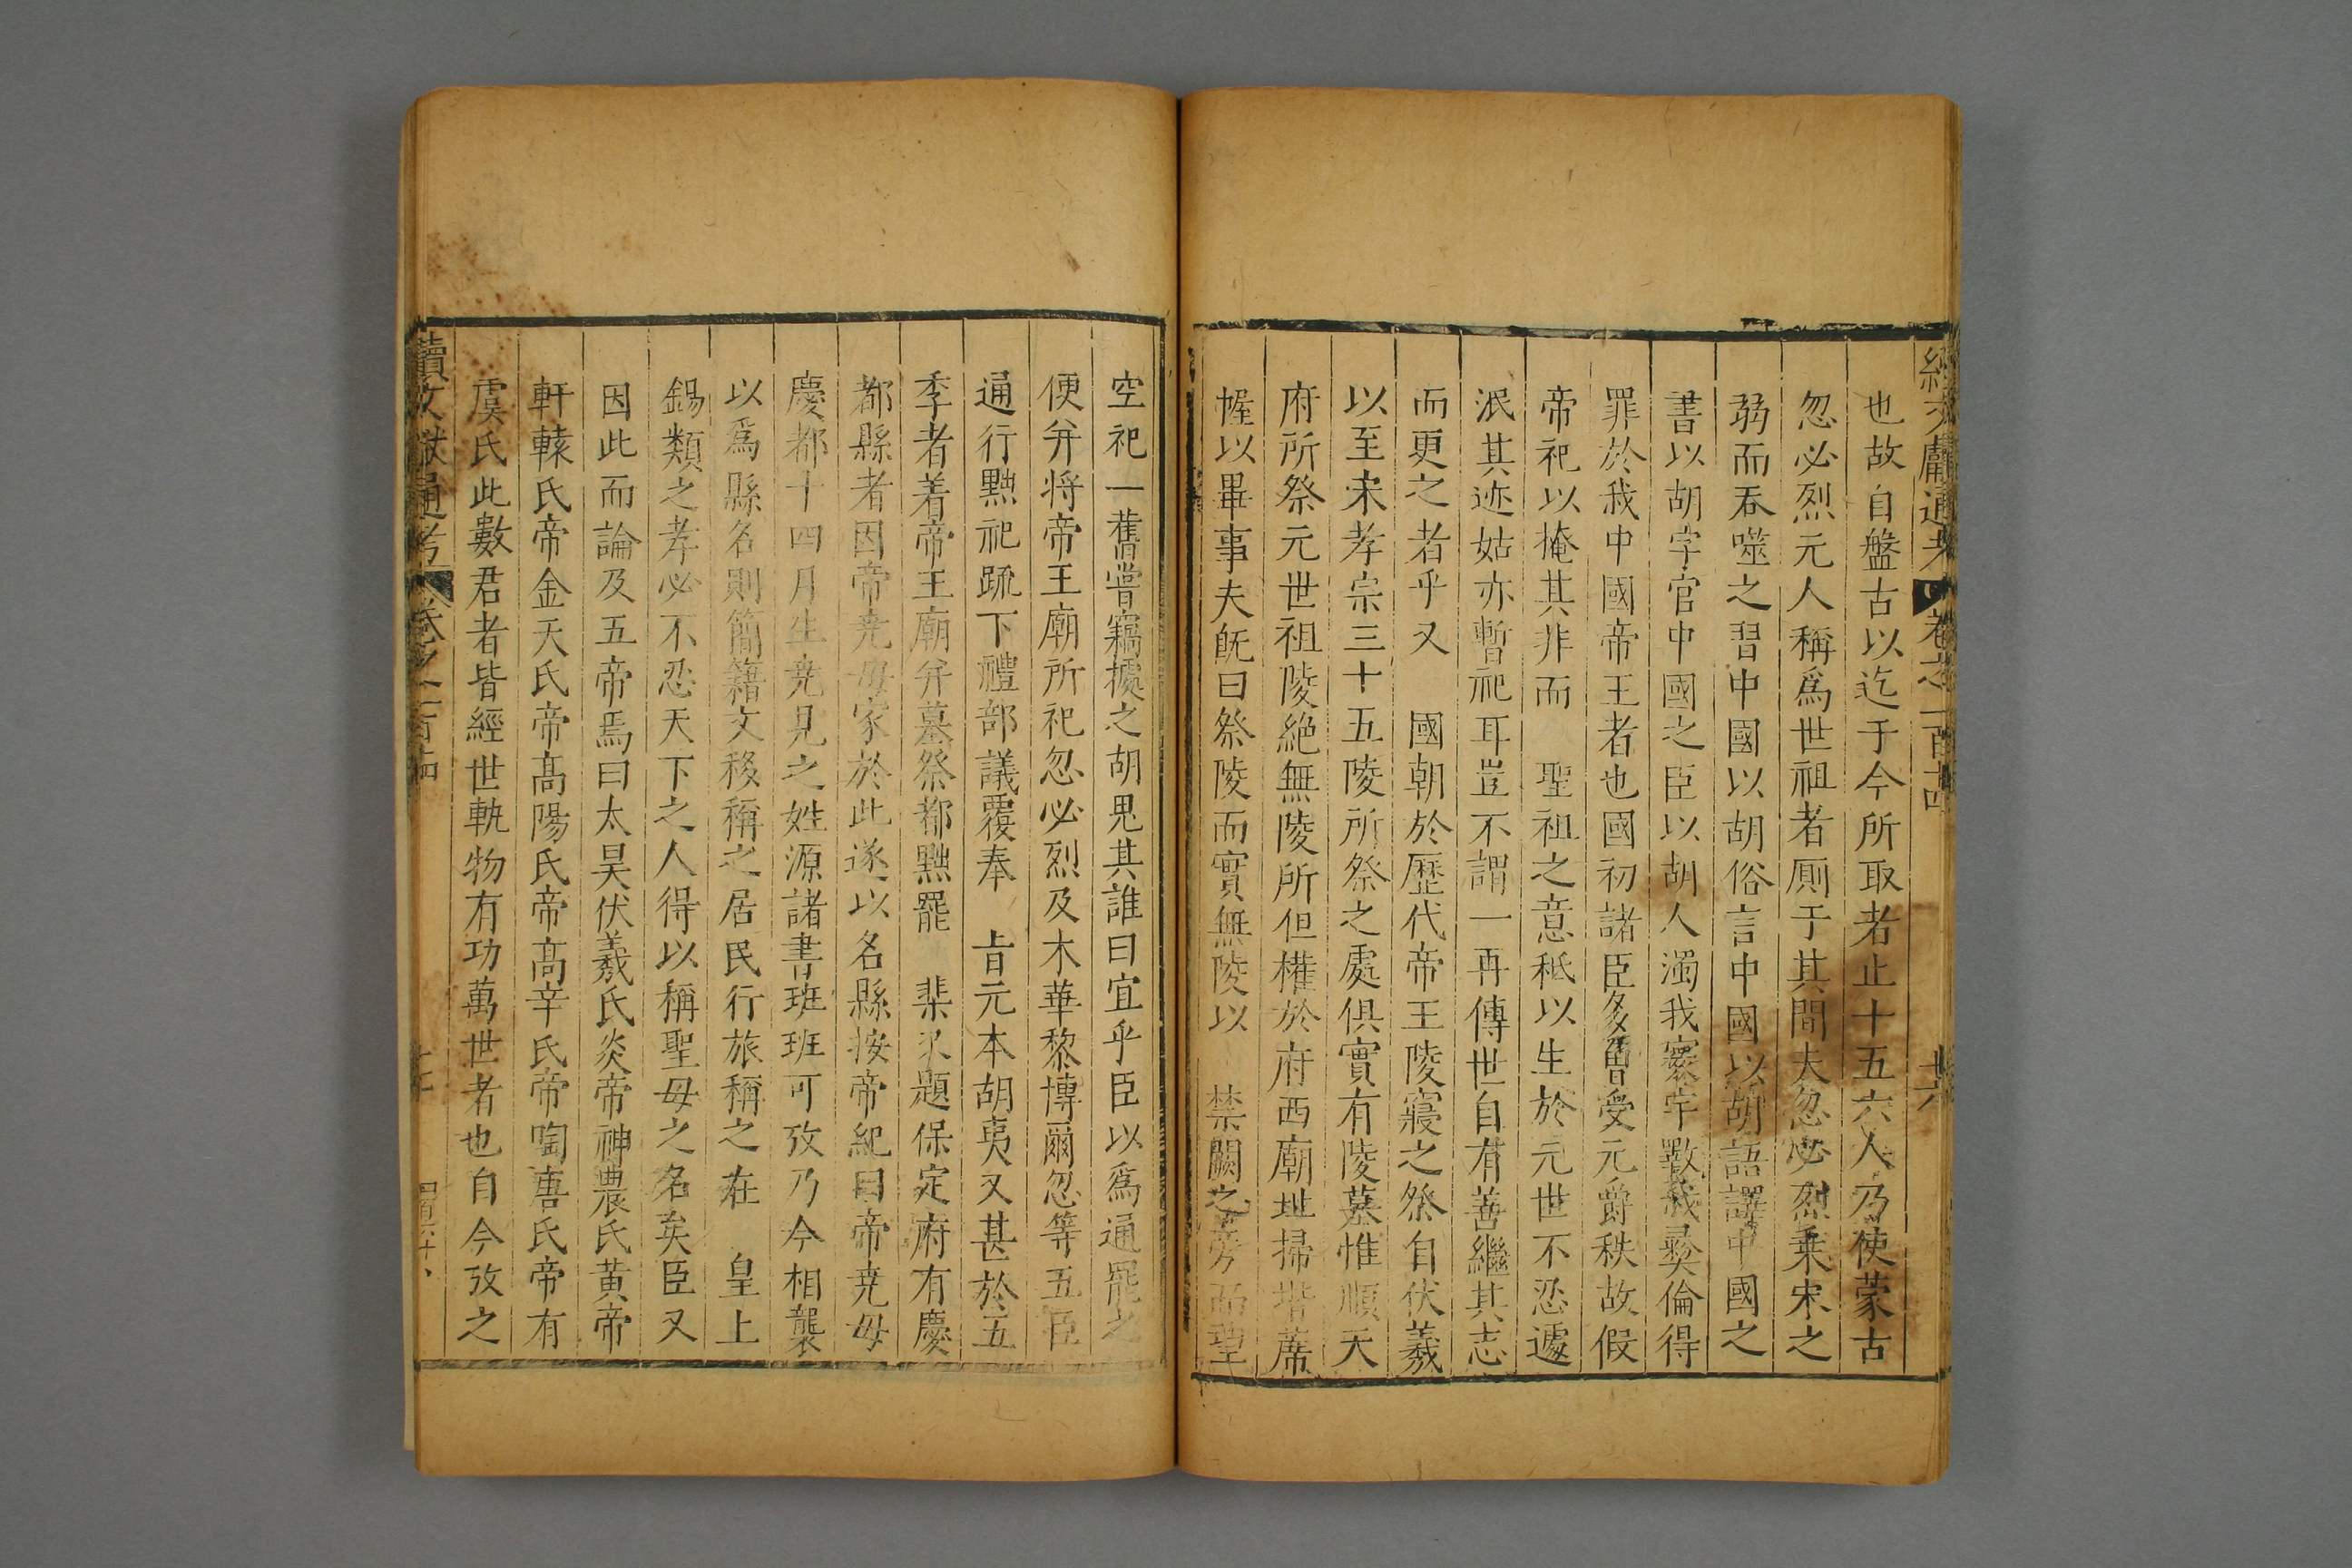 續文獻通考 卷之一百十四 共六
也故自盤古以迄于今所取者止十五六人乃使蒙古
忽必烈元人稱爲世祖者厠于其間夫忽必烈乗宋之
弱而吞噬之習中國以胡俗言中國以胡語譯中國之
書以胡字官中國之臣以胡人濁我寰宇斁我彛倫得
罪於我中國帝王者也國初諸臣多曾受元爵秩故假
帝祀以掩其非而 聖祖之意秪以生於元世不忍遽
泯其迹姑亦暫祀耳豈不謂一再傳世自有善繼其志
而更之者乎又 國朝於歷代帝王陵寢之祭自伏羲
以至宋孝宗三十五陵所祭之處俱實有陵墓惟順天
府所祭元世祖陵絶無陵所但權於府西廟址掃堦蓆
幄以畢事夫旣曰祭陵而實無陵以 禁闕之旁而聖
空祀一舊嘗竊據之胡鬼其誰曰宜乎臣以爲通罷之
便并将帝王廟所祀忽必烈及木華黎博爾忽等五臣
通行黜祀䟽下禮部議覆奉 㫖元本胡夷又甚於五
季者着帝王廟并墓祭都黜罷 棐又題保定府有慶
都縣者因帝尭母家於此遂以名縣按帝紀曰帝尭母
慶都十四月生尭見之姓源諸書班班可攷乃今相襲
以爲縣名則簡籍文移稱之居民行旅稱之在 皇上
錫類之孝必不忍天下之人得以稱聖母之名矣臣又
因此而論及五帝焉曰太昊伏羲氏炎帝神農氏黄帝
軒轅氏帝金天氏帝髙陽氏帝髙辛氏帝陶唐氏帝有
虞氏此數君者皆經世軌物有功萬世者也自今攷之
續文獻通考 卷之一百十四